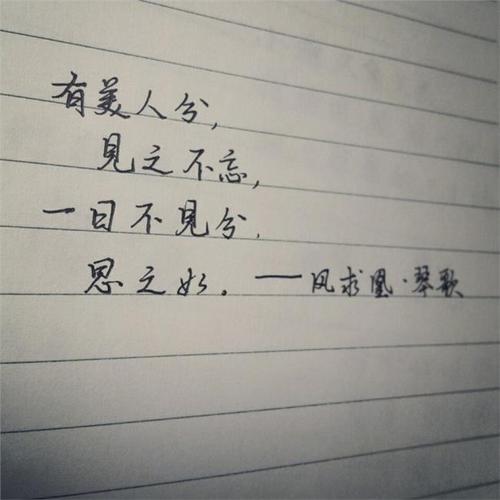 有美人兮,
見之不忘,
一日不見兮.
思之如. ——风求凰·琴歌